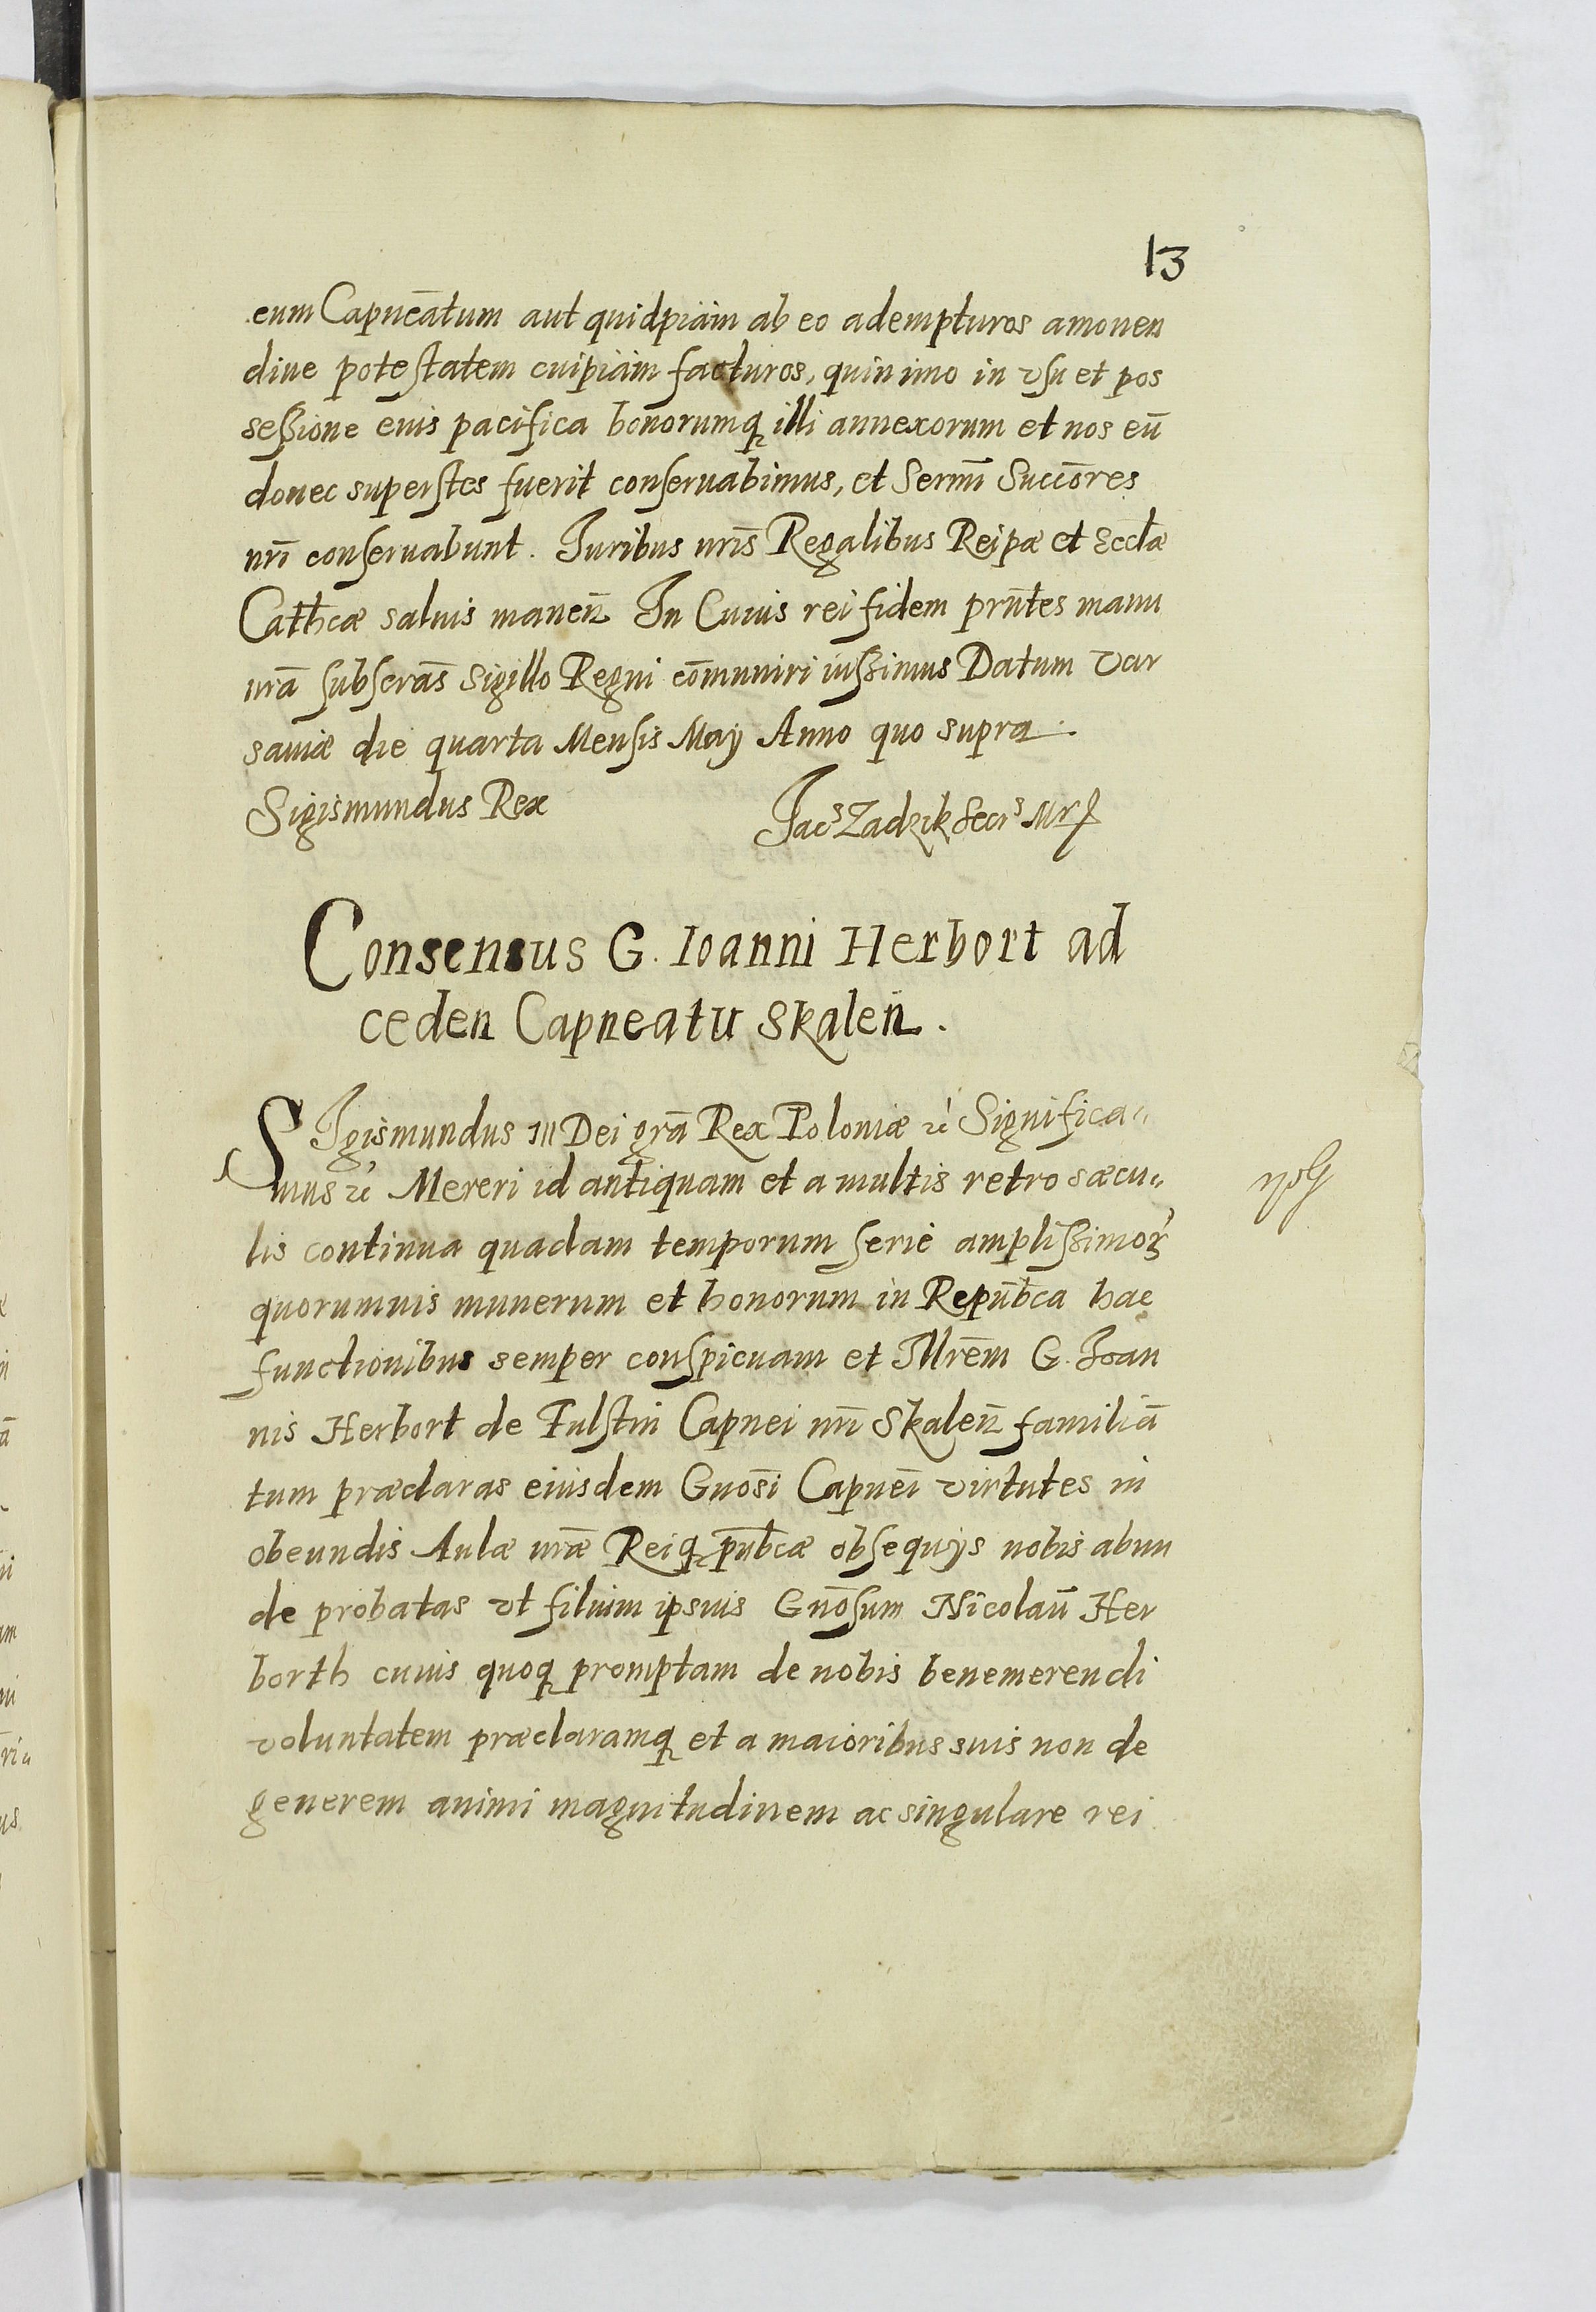 13
eum Capneãtum aut quidpiam ab eo adempturos amouen
diue potestatem cuipiam facturos, quin imo in vsu et pos
sessione eius pacifica bonorumq̨ illi annexorum et nos eũ
donec superstes fuerit conseruabimus, et Sermi͂ Succõres
nri͂ conseruabunt. Iuribus nris͂ Regalibus Reipæ et Eccłæ
Cathcæ saluis maneñ In Cuius rei fidem prñtes manu
nrã subscrãs Sigillo Regni cõmuniri iussimus Datum Var
sauiæ die quarta Mensis Maÿ Anno quo supra.
Sigismundus Rex
Jacˢ Zadzik Secrˢ Mrſ
Consensus G. Ioanni Herbort ad
ceden Capneatu Skaleñ.
SIgismundus III Dei grã Rex Poloniæ &c Significa„
mus &c Mereri id antiquam et a multis retro sæcu„
lis continua quadam temporum serie amplissimoꝝ
quorumuis munerum et honorum in Repub̃ca hac
functionibus semper conspicuam et Illrẽm G. Ioan
nis Herbort de Fulstin Capnei nri͂ Skaleñ familiã
tum præclaras eiusdem Gnõsi Capnei͂ virtutes in
obeundis Aulæ nrãe Reiq̨ pub̃cæ obsequÿs nobis abun
de probatas vt filium ipsius Gnõsum Nicolaũ Her
borth cuius quoq̨ promptam de nobis benemerendi
voluntatem præclaramq̨ et a maioribus suis non de
generem animi magnitudinem ac singulare rei